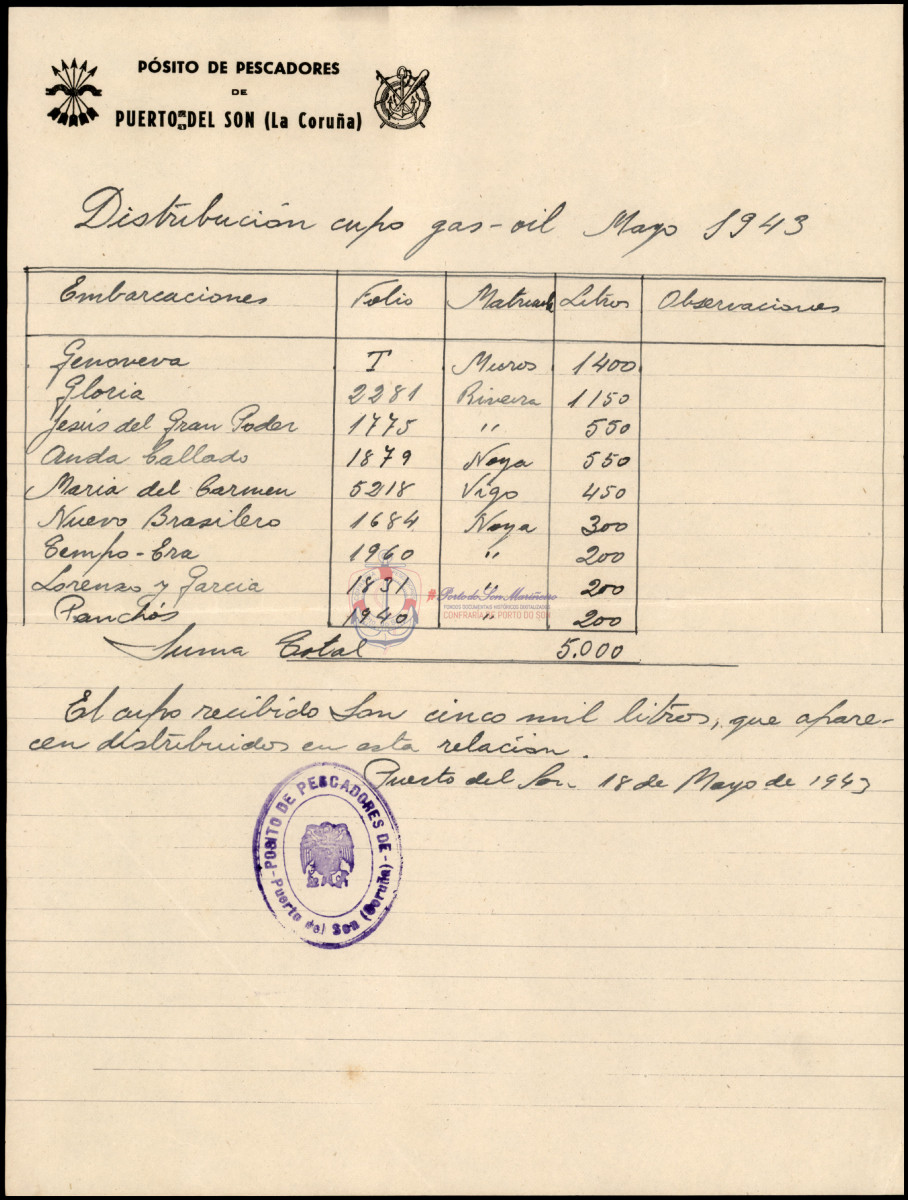 PÓSITO DE PESCADORES
DE
PUERTO DEL SON (La Coruña)
Distribución cupo gas-oil Mayo 1943
Embarcaciones Folio Matricula Litros Observaciones
Genoveva T Muros 1400
Gloria 2281 Riveira 1150
Jesús del Gran Poder 1775 " 550
Anda Callado 1879 Noya 550
Maria del Carmen 5218 Vigo 450
Nuevo Brasilero 1684 Noya 300
Tempo-Era 1960 " 200
Lorenzo y Garcia 1831 " 200
#Porto do Son Mariñeiro
FONDOS DOCUMENTAIS HISTÓRICOS DIGITALIZADOS
CONFRARÍA DE PORTO DO SON
Panchós 1940 " 200
Suma Total 5.000
El cupo recibido son cinco mil litros, que apare-
cen distribuidos en esta relación.
Puerto del Son 18 de Mayo de 1943
-POSITO DE PESCADORES DE-
Puerto del Son (Coruña)